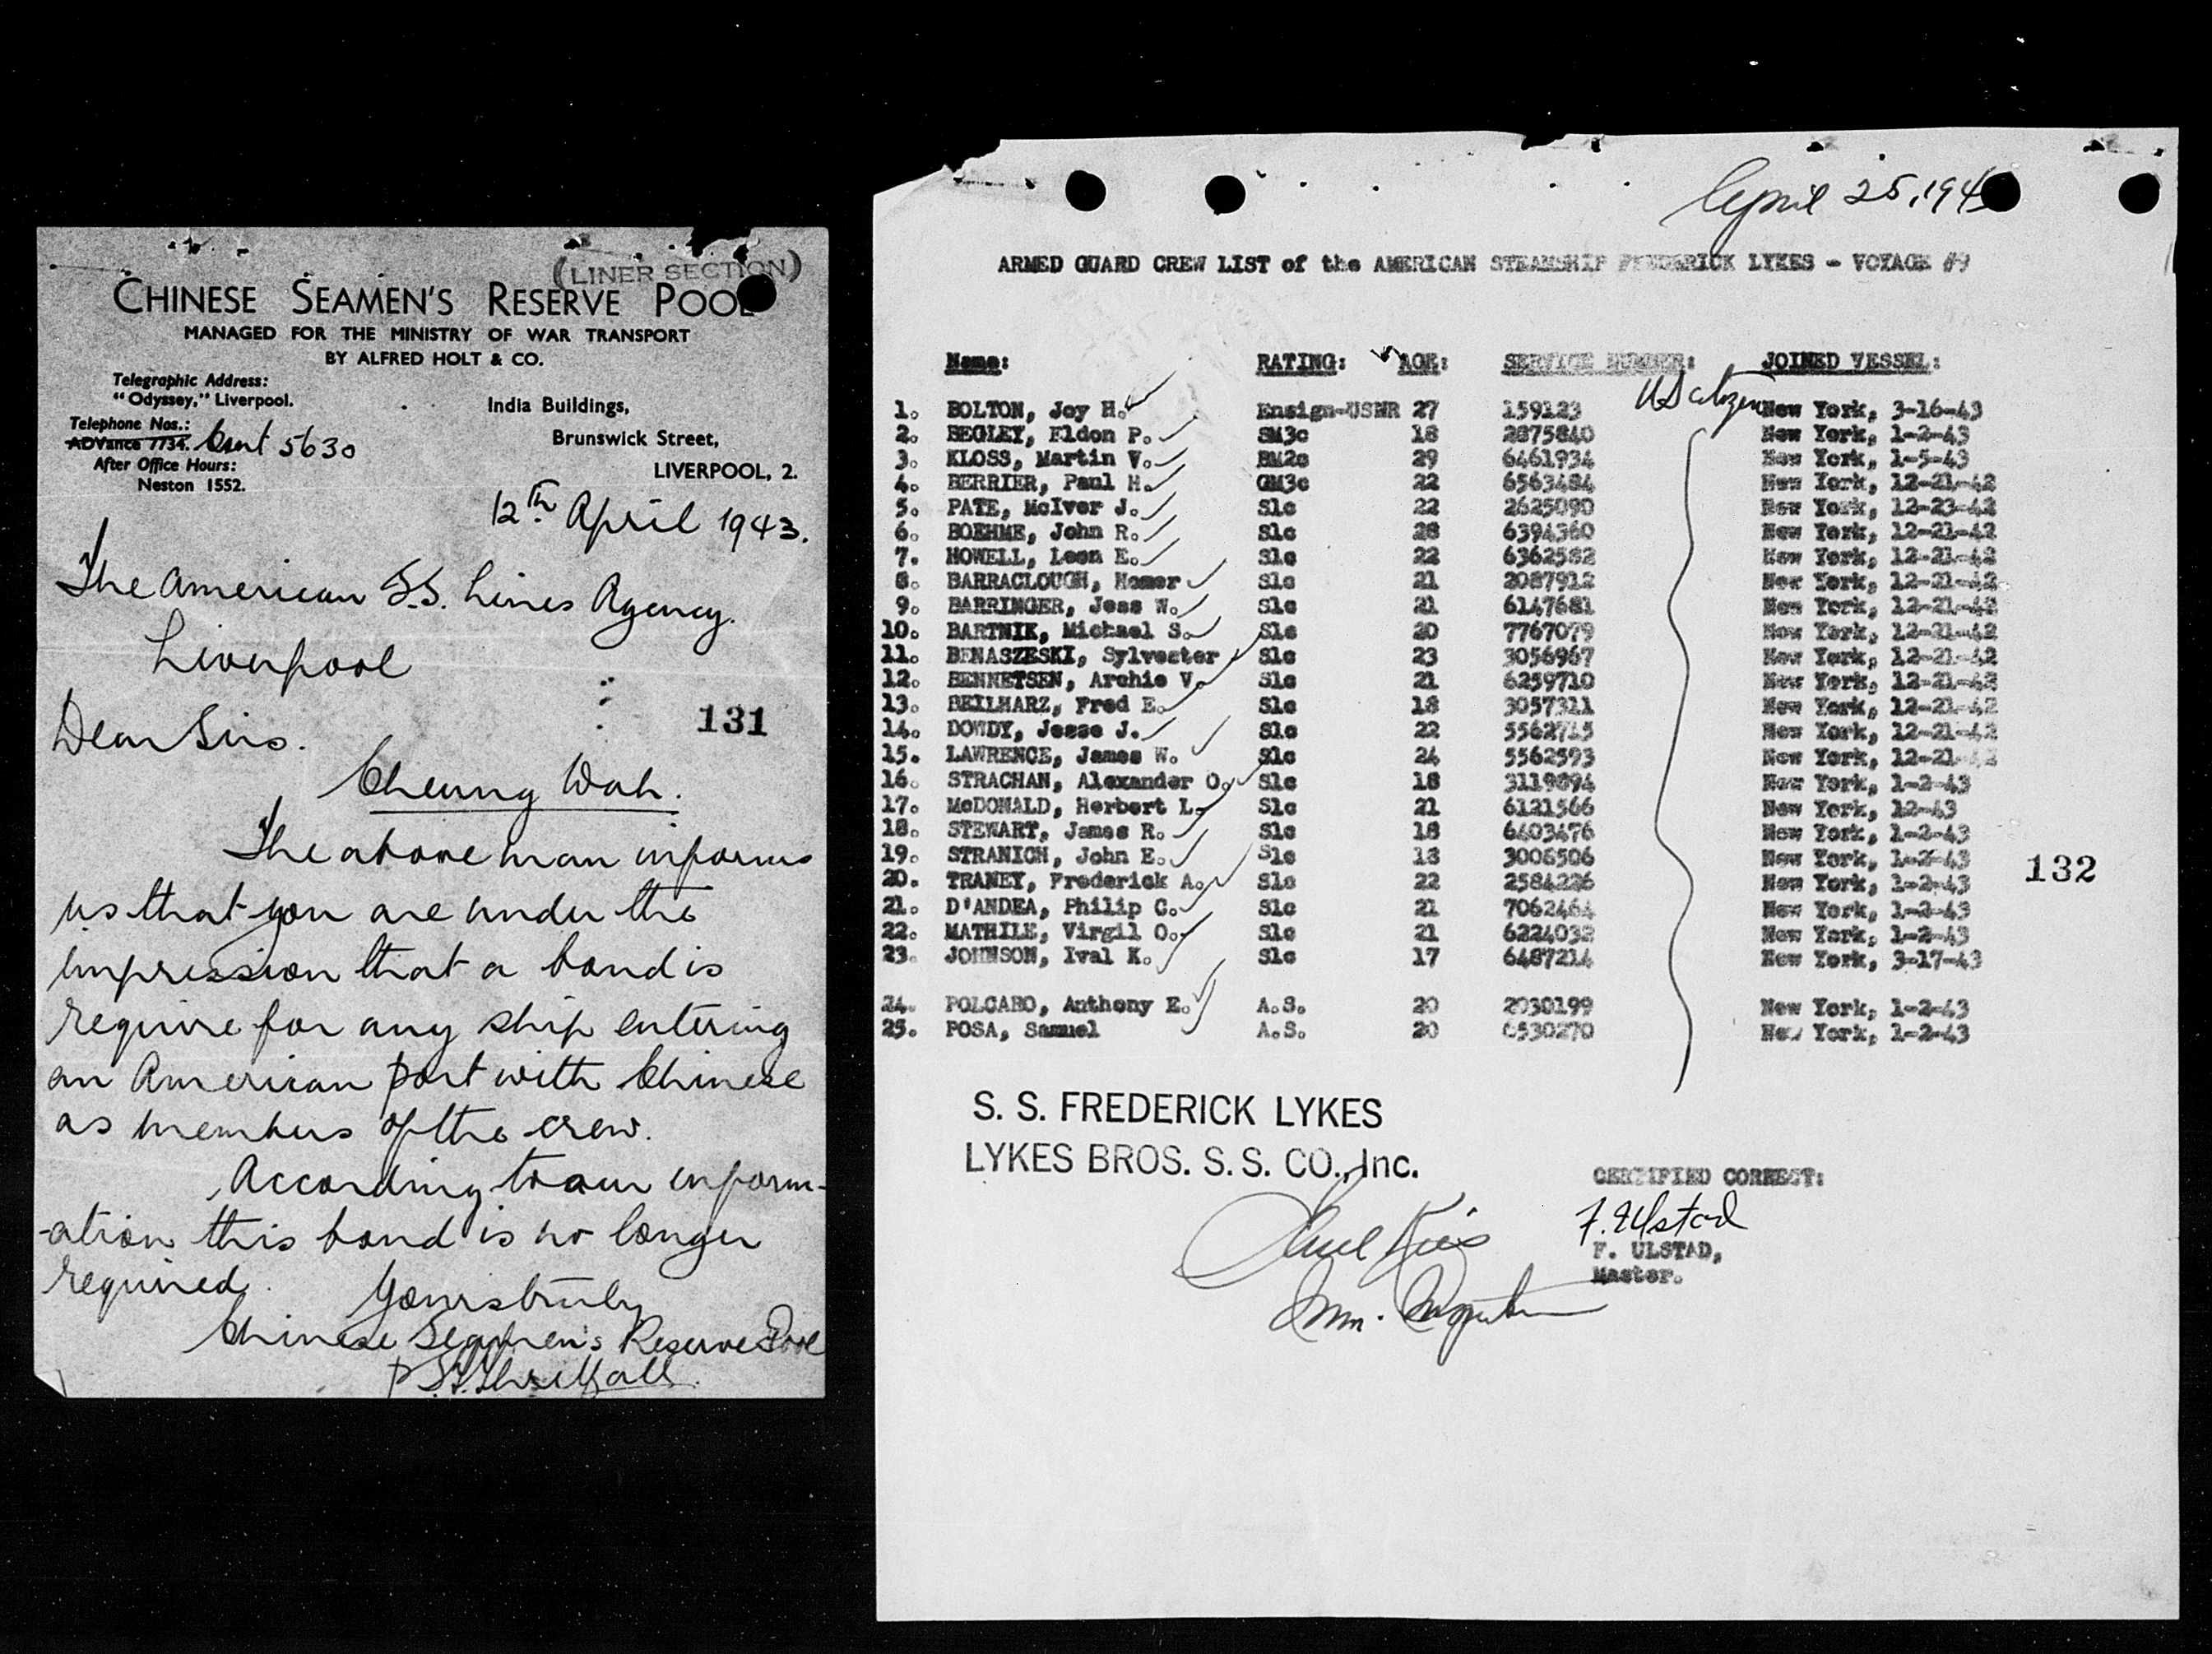 (LINER SECTION)
CHINESE SEAMEN'S RESERVE POOL
MANAGED FOR THE MINISTRY OF WAR TRANSPORT
BY ALFRED HOLT & CO.
Telegraphic Address:
"Odyssey," Liverpool.
Telephone Nos.:
ADVance 7734. Cent 5630
After Office Hours:
Neston 1552.
India Buildings,
Brunswick Street,
LIVERPOOL, 2.
12th April 1943.
The American S.S. Lines Agency.
Liverpool
131
Dear Sirs.
Cheung Wah.
The above man informs
us that you are under the
impression that a bond is
require for any ship entering
an American port with Chinese
as members of the crew.
According to our inform-
-ation this bond is no longer
required.
Yours truly
Chinese Seamen's Reserve Pool
April 25, 194
ARMED GUARD CREW LIST of the AMERICAN STEAMSHIP FREDERICK LYKES - VOYAGE #9
Name: RATING: AGE: SERVICE NUMBER: JOINED VESSEL:
US citizen
1. BOLTON, Joy H. Ensign-USNR 27 159123 New York, 3-16-43
2. BEGLEY, Eldon P. SM3c 18 2875840 New York, 1-2-43
3. KLOSS, Martin V. BM2c 29 6461934 New York, 1-5-43
4. BERRIER, Paul H. GM3c 22 6563484 New York, 12-21-42
5. PATE, McIver J. S1c 22 2625090 New York, 12-23-42
6. BOEHME, John R. S1c 28 6394360 New York, 12-21-42
7. HOWELL, Leon E. S1c 22 6362582 New York, 12-21-42
8. BARRACLOUGH, Homer S1c 21 2087912 New York, 12-21-42
9. BARRINGER, Jess W. S1c 21 6147681 New York, 12-21-42
10. BARTNIK, Michael S. S1c 20 7767079 New York, 12-21-42
11. BENASZESKI, Sylvester S1c 23 3056967 New York, 12-21-42
12. BENNETSEN, Archie V. S1c 21 6259710 New York, 12-21-42
13. BEILHARZ, Fred E. S1c 18 3057311 New York, 12-21-42
14. DOWDY, Jesse J. S1c 22 5562715 New York, 12-21-42
15. LAWRENCE, James W. S1c 24 5562593 New York, 12-21-42
16. STRACHAN, Alexander O. S1c 18 3119894 New York, 1-2-43
17. McDONALD, Herbert L. S1c 21 6121566 New York, 12-43
18. STEWART, James R. S1c 18 6403476 New York, 1-2-43
19. STRANICH, John E. S1c 18 3006506 New York, 1-2-43
20. TRANEY, Frederick A. S1c 22 2584226 New York, 1-2-43
21. D'ANDEA, Philip C. S1c 21 7062464 New York, 1-2-43
22. MATHILE, Virgil O. S1c 21 6224032 New York, 1-2-43
23. JOHNSON, Ival K. S1c 17 6487214 New York, 3-17-43
24. POLCARO, Anthony E. A.S. 20 2030199 New York, 1-2-43
25. POSA, Samuel A.S. 20 6530270 New York, 1-2-43
132
S. S. FREDERICK LYKES
LYKES BROS. S. S. CO., Inc.
CERTIFIED CORRECT:
F. Ulstad
F. ULSTAD,
Master.